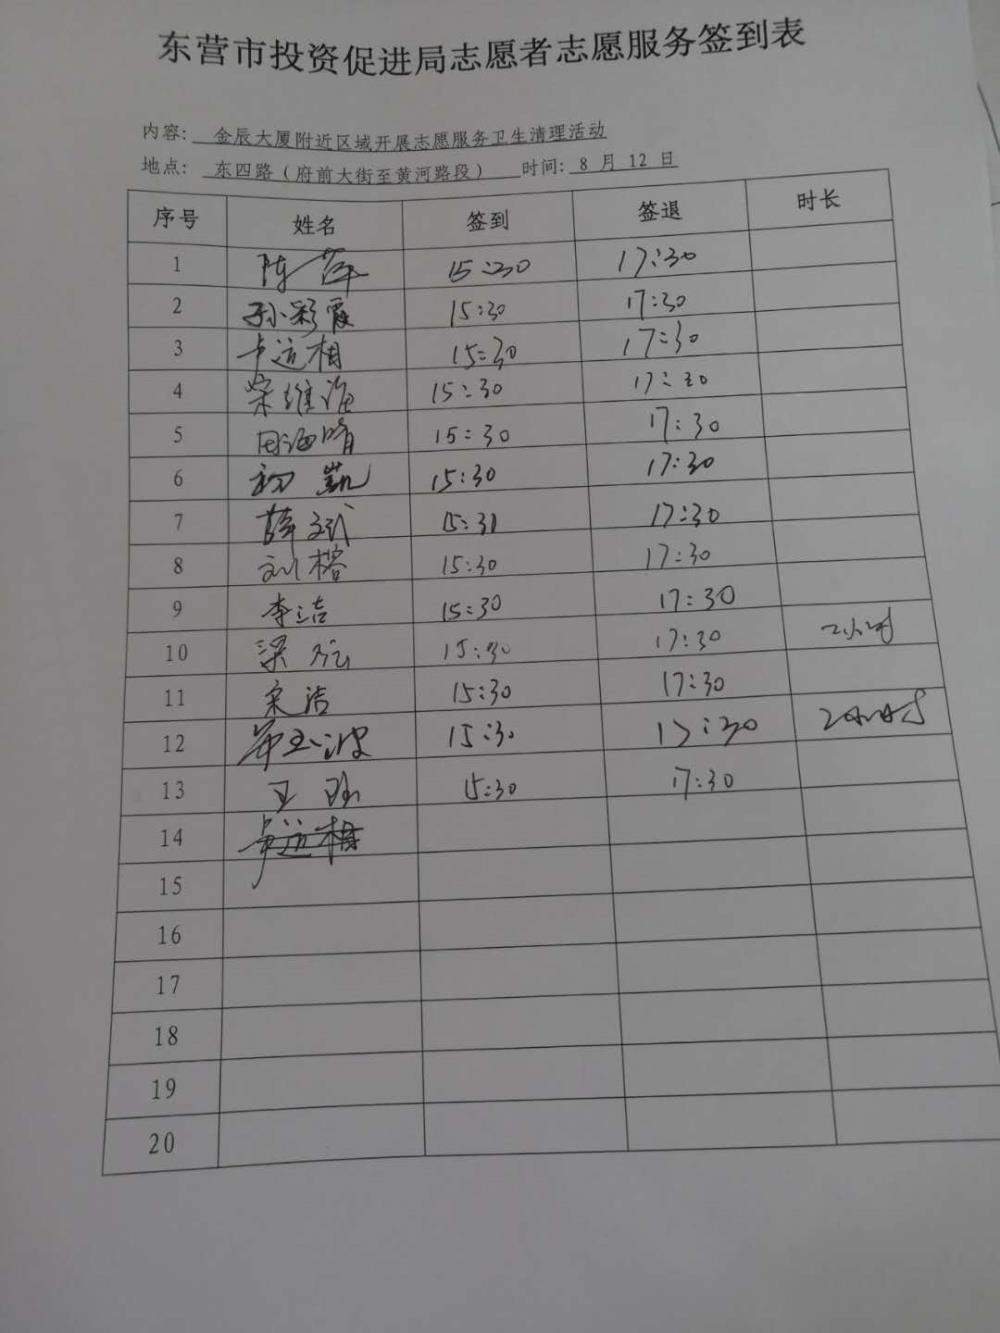 东营市投资促进局志愿者志愿服务签到表
内容: 金辰大厦附近区域开展志愿服务卫生清理活动
地点: 东四路(府前大街至黄河路段) 时间: 8 月 12 日
序号 姓名 签到 签退 时长
1 陈萍 15:30 17:30
2 孙彩霞 15:30 17:30
3 卡运相 15:30 17:30
4 15:30 17:30
5 周海晴 15:30 17:30
6 初凯 15:30 17:30
7 薛文斌 15:31 17:30
8 刘榕 15:30 17:30
9 李洁 15:30 17:30
10 梁 15:30 17:30 2小时
11 宋洁 15:30 17:30
12 15:30 17:30 2小时
13 王 15:30 17:30
14
15
16
17
18
19
20